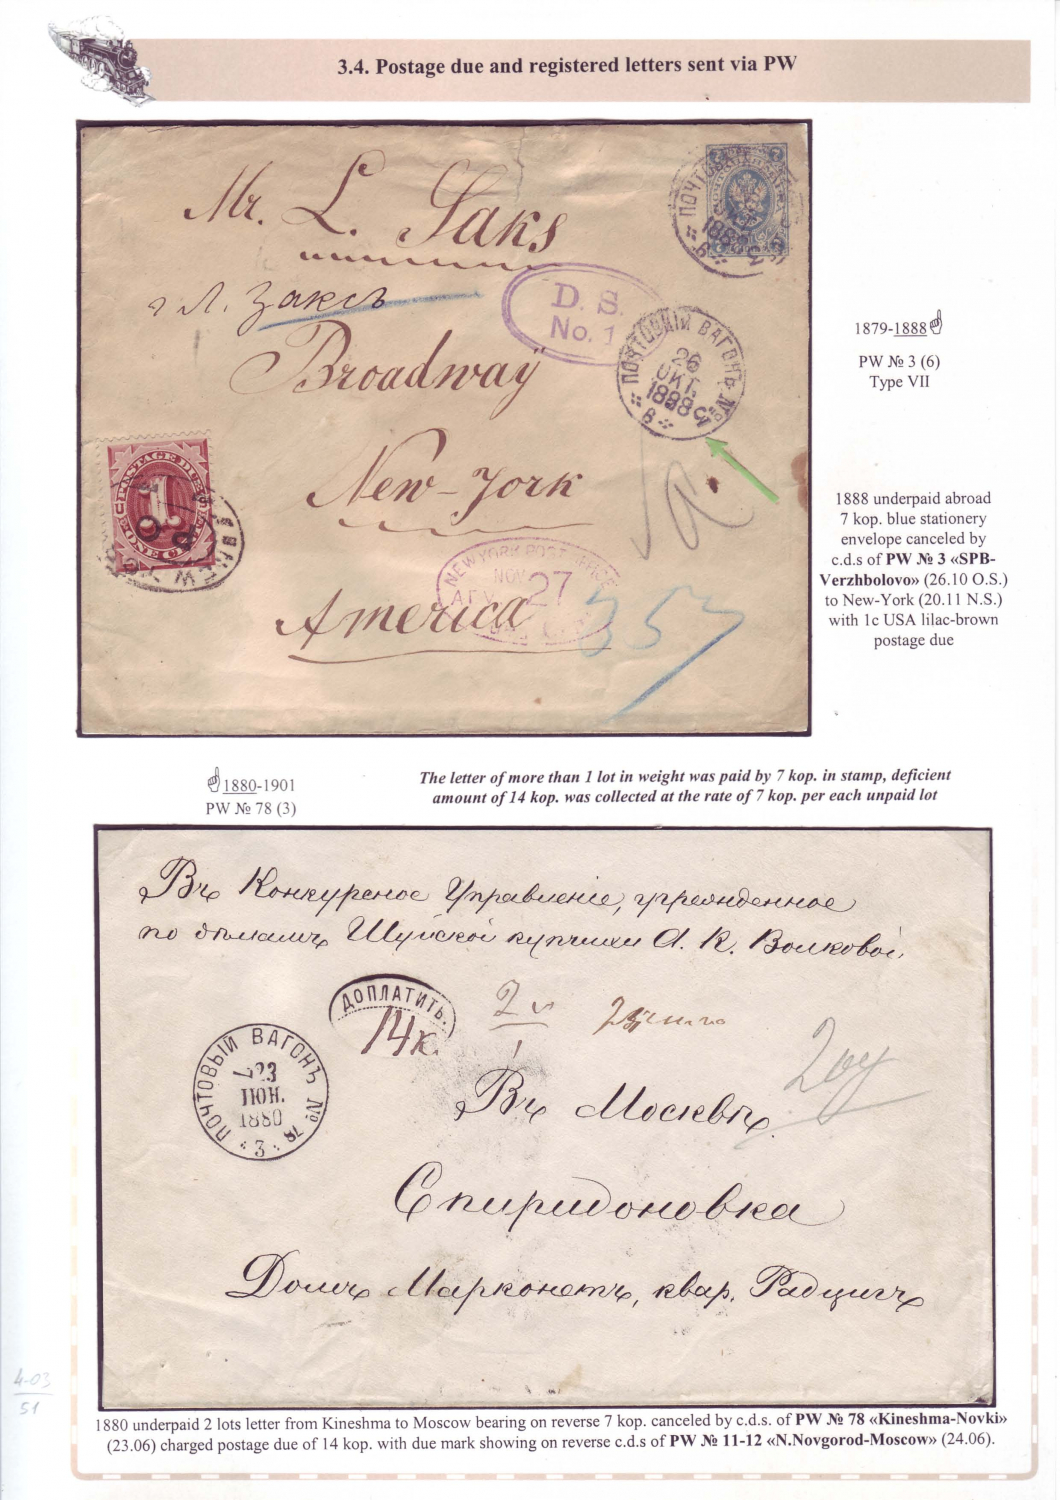 3.4. Postage due and registered letters sent via PW
Mr. L. Saks
г Л. Заксъ
Broadway
New-York
America
D. S.
No. 1
ПОЧТОВЫЙ ВАГОНЪ №
26
ОКТ.
1888
6
ПОЧТОВ
1888
6
POSTAGE DUE
1
ONE CENT
NEW YORK POST OFFICE
NOV 27
357
1879-1888
PW № 3 (6)
Type VII
1888 underpaid abroad
7 kop. blue stationery
envelope canceled by
c.d.s of PW № 3 «SPB-
Verzhbolovo» (26.10 O.S.)
to New-York (20.11 N.S.)
with 1c USA lilac-brown
postage due
1880-1901
PW № 78 (3)
The letter of more than 1 lot in weight was paid by 7 kop. in stamp, deficient
amount of 14 kop. was collected at the rate of 7 kop. per each unpaid lot
Въ Конкурсное Управленіе, учрежденное
по дѣламъ Шуйской купчихи А. К. Волковой,
ДОПЛАТИТЬ.
14 к.
2 л
ПОЧТОВЫЙ ВАГОНЪ № 78
23
ІЮН.
1880
3
Въ Москвѣ
Спиридоновка
Домъ Марконетъ, квар. Радцигъ
4-03
51
1880 underpaid 2 lots letter from Kineshma to Moscow bearing on reverse 7 kop. canceled by c.d.s. of PW № 78 «Kineshma-Novki»
(23.06) charged postage due of 14 kop. with due mark showing on reverse c.d.s of PW № 11-12 «N.Novgorod-Moscow» (24.06).